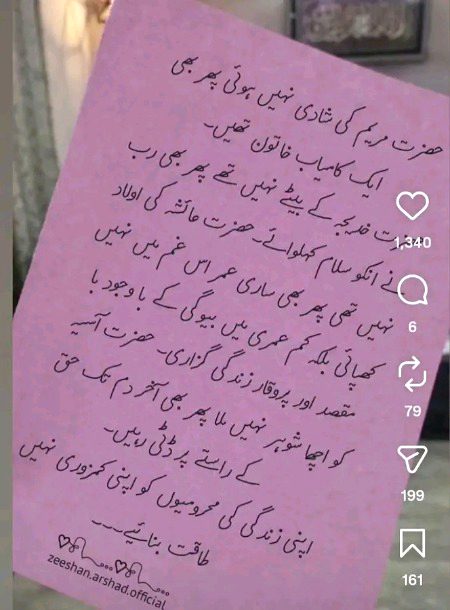 حضرت مریم کی شادی نہیں ہوئی پھر بھی
ایک کامیاب خاتون تھیں۔
خدیجہ کے بیٹے نہیں تھے پھر بھی رب
نے انکو سلام کہلوائے۔ حضرت عائشہ کی اولاد
نہیں تھی پھر بھی ساری عمر اس غم میں نہیں
کھپائی بلکہ کم عمری میں بیوگی کے باوجود با
مقصد اور پروقار زندگی گزاری۔ حضرت آسیہ
کو اچھا شوہر نہیں ملا پھر بھی آخر دم تک حق
کے راستے پر ڈٹی رہیں۔
اپنی زندگی کی محرومیوں کو اپنی کمزوری نہیں
طاقت بنائیے۔۔۔
zeeshan.arshad.official
1,340
6
79
199
161